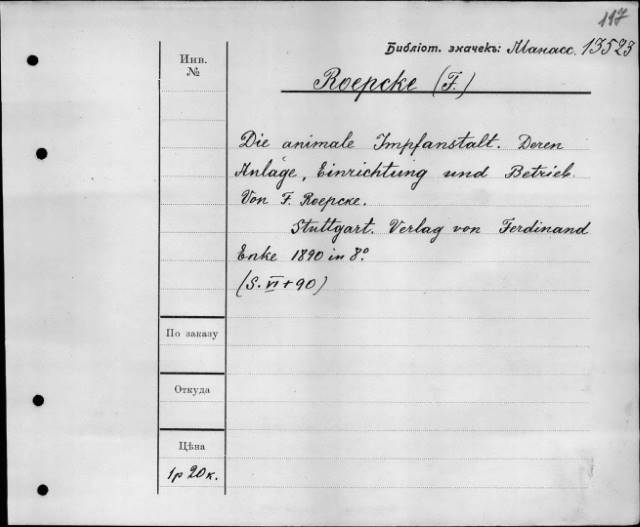 117
Библіот. значекъ: Манасс. 13523
Инв.
№
Roepcke (F.)
Die animale Impfanstalt. Deren
Anlage, Einrichtung und Betrieb.
Von F. Roepcke.
Stuttgart. Verlag von Ferdinand
Enke 1890 in 8º.
(S. VI + 90)
По заказу
Откуда
Цѣна
1р 20к.